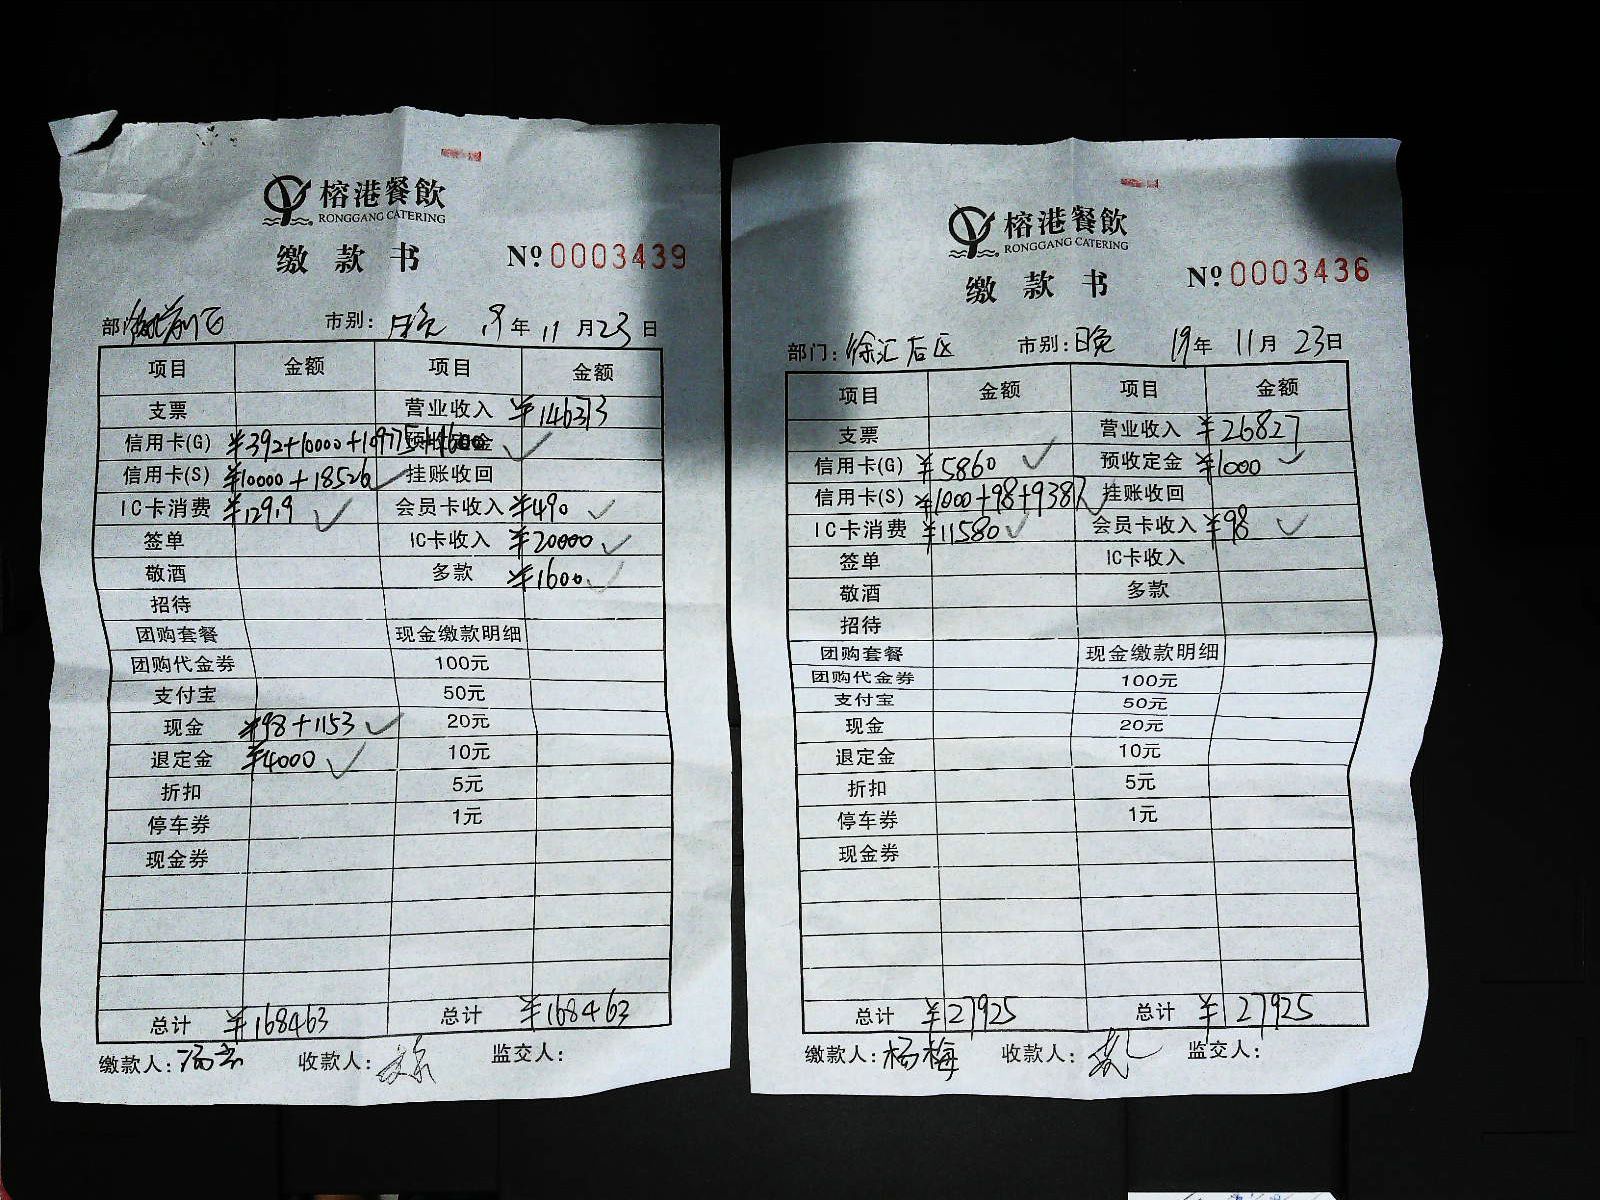 榕港餐飲
RONGGANG CATERING
缴款书 № 0003439
市别: 日晚 19年 11月 23日
项目 金额 项目 金额
支票 营业收入 ¥146373
信用卡(G) ¥392+10000+109775+1600 预收定金
信用卡(S) ¥10000+18526 挂账收回
IC卡消费 ¥12919 会员卡收入 ¥490
签单 IC卡收入 ¥20000
敬酒 多款 ¥1600
招待
团购套餐 现金缴款明细
团购代金券 100元
支付宝 50元
现金 ¥98+1153 20元
退定金 ¥4000 10元
折扣 5元
停车券 1元
现金券
总计 ¥168463 总计 ¥168463
缴款人: 收款人: 监交人:
榕港餐飲
RONGGANG CATERING
缴款书 № 0003436
部门: 徐汇后区 市别: 日晚 19年 11月 23日
项目 金额 项目 金额
支票 营业收入 ¥26827
信用卡(G) ¥5860 预收定金 ¥1000
信用卡(S) ¥1000+98+9387 挂账收回
IC卡消费 ¥11580 会员卡收入 ¥98
签单 IC卡收入
敬酒 多款
招待
团购套餐 现金缴款明细
团购代金券 100元
支付宝 50元
现金 20元
退定金 10元
折扣 5元
停车券 1元
现金券
总计 ¥27925 总计 ¥27925
缴款人: 杨梅 收款人: 监交人: